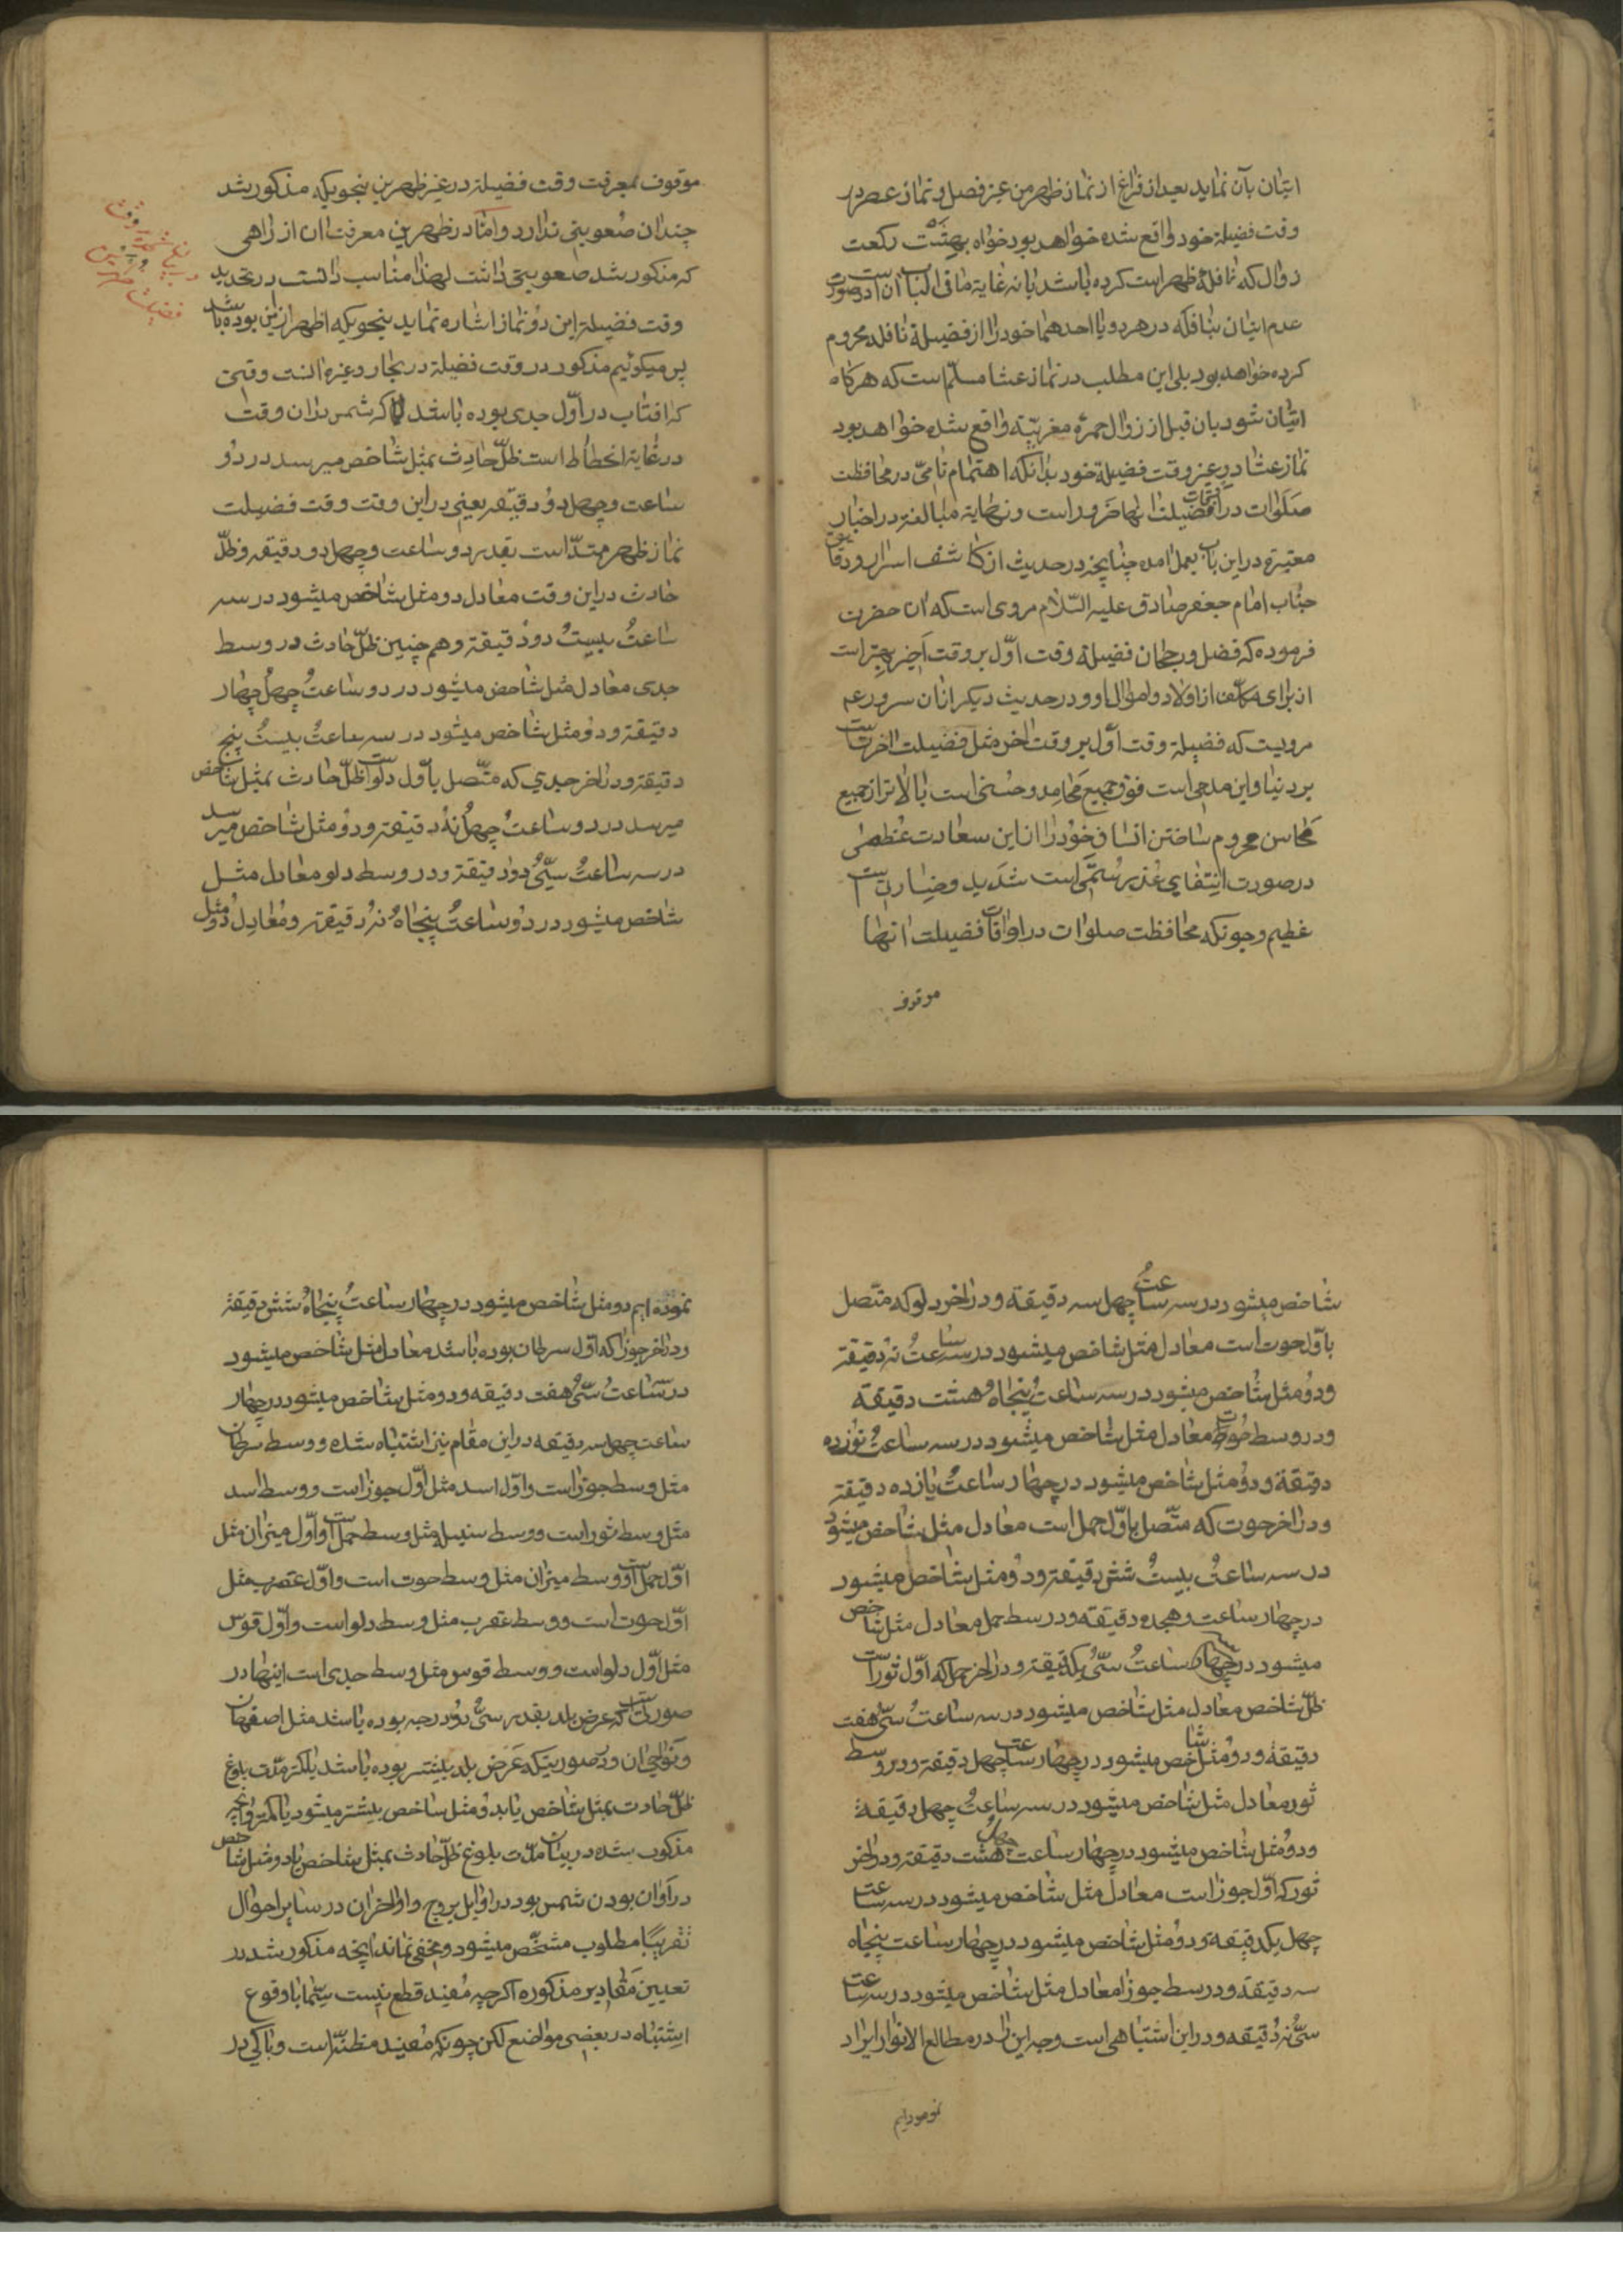 اتیان بآن نماید بعد از فراغ از نماز ظهر من غیر فصل و نماز عصر در
وقت فضیلة خود واقع شده خواهد بود خواه بهشت رکعت
زوال که نافلهٔ ظهر است کرده باشد یا نه غایة ما فی الباب آن است در صورت
عدم اتیان بنافله در هر دو یا احدهما خود را از فضیلة نافله محروم
کرده خواهد بود بلی این مطلب در نماز عشا مسلّم است که هرکاه
اتیان شود بان قبل از زوال حمرهٔ مغربیّه واقع شده خواهد بود
نماز عشا در غیر وقت فضیلة خود بدانکه اهتمام تامّی در محافظت
صلوات در اوقات فضیلت انها ضرور است و نهایة مبالغه در اخبار
معتبره در این باب بعمل امده چنانچه در حدیث از کاشف اسرار و دقایق
جناب امام جعفر صادق علیه السّلام مروی است که ان حضرت
فرموده که فضل و رجحان فضیلة وقت اوّل بر وقت اخیر بهتر است
از برای مکلف از اولاد و اموال او و در حدیث دیکر از ان سرور عم
مرویست که فضیلة وقت اوّل بر وقت اخر مثل فضیلت اخرتست
بر دنیا و این مدحی است فوق جمیع محامد و حسنی است بالاتر از جمیع
محاسن محروم ساختن انسان خود را از این سعادت عظمی
در صورت انتفای عذر ستمی است شدید و خسارتی است
عظیم و چونکه محافظت صلوات در اوقات فضیلت انها
موقوف
موقوف بمعرفت وقت فضیلة در غیر ظهرین بنحویکه مذکور شد
چندان صعوبتی ندارد و امّا در ظهرین معرفت ان از راهی
که مذکور شد صعوبتی داشت لهذا مناسب دانست در تحدید
وقت فضیلة این دو نماز اشاره نماید بنحویکه اظهر از این بوده باشد
در بیان وقت
فضیلت ظهرین
پس میکوئیم مذکور در وقت فضیلة در بحار و غیره انست وقتی
که افتاب در اوّل جدی بوده باشد که شمس در ان وقت
در غایة انحطاط است ظلّ حادث بمثل شاخص میرسد در دو
ساعت و چهل دو دقیقه یعنی در این وقت وقت فضیلت
نماز ظهر ممتدّ است بقدر دو ساعت و چهل دو دقیقه و ظلّ
حادث در این وقت معادل دو مثل شاخص میشود در سه
ساعت بیست دو دقیقه و هم چنین ظلّ حادث در وسط
جدی معادل مثل شاخص میشود در دو ساعت چهل چهار
دقیقه و دو مثل شاخص میشود در سه ساعت بیست پنج
دقیقه و در اخر جدی که متّصل باوّل دلو است ظلّ حادث بمثل شاخص
میرسد در دو ساعت چهل نه دقیقه و دو مثل شاخص میرسد
در سه ساعت سی دو دقیقه و در وسط دلو معادل مثل
شاخص میشود در دو ساعت پنجاه نه دقیقه و معادل دو مثل
شاخص میشود در سه ساعت چهل سه دقیقه و در اخر دلو که متّصل
باوّل حوت است معادل مثل شاخص میشود در سه ساعت نه دقیقه
و دو مثل شاخص میشود در سه ساعت پنجاه و هشت دقیقه
و در وسط حوت معادل مثل شاخص میشود در سه ساعت نوزده
دقیقة و دو مثل شاخص میشود در چهار ساعت یازده دقیقة
و در اخر حوت که متّصل باوّل حمل است معادل مثل شاخص میشود
در سه ساعت بیست شش دقیقه و دو مثل شاخص میشود
در چهار ساعت و هجده دقیقه و در وسط حمل معادل مثل شاخص
میشود در ساعت سی یکدقیقه و در اخر حمل که اوّل ثور است
ظلّ شاخص معادل مثل شاخص میشود در سه ساعت سی هفت
دقیقة و دو مثل شاخص میشود در چهار ساعت چهل دقیقه و در وسط
ثور معادل مثل شاخص میشود در سه ساعت چهل دقیقة
و دو مثل شاخص میشود در چهار ساعت چهل هشت دقیقه و در اخر
ثور که اوّل جوزا است معادل مثل شاخص میشود در سه ساعت
چهل یکدقیقه و دو مثل شاخص میشود در چهار ساعت پنجاه
سه دقیقه و در وسط جوزا معادل مثل شاخص میشود در سه ساعت
سی نه دقیقه و در این اشتباهی است وجه این را در مطالع الانوار ایراد
نموده‌ایم
نموده ایم دو مثل شاخص میشود در چهار ساعت پنجاه شش دقیقه
و در اخر جوزا که اوّل سرطان بوده باشد معادل مثل شاخص میشود
در سه ساعت سی هفت دقیقه و دو مثل شاخص میشود در چهار
ساعت چهل سه دقیقه در این مقام نیز اشتباه شده و وسط سرطان
مثل وسط جوزا است و اوّل اسد مثل اوّل جوزا است و وسط اسد
مثل وسط ثور است و وسط سنبله مثل وسط حمل است و اوّل میزان مثل
اوّل حمل است و وسط میزان مثل وسط حوت است و اوّل عقرب مثل
اوّل حوت است و وسط عقرب مثل وسط دلو است و اوّل قوس
مثل اوّل دلو است و وسط قوس مثل وسط جدی است اینها در
صورتیست که عرض بلد بقدر سی دو درجه بوده باشد مثل اصفهان
و نواحی ان و در صورتیکه عرض بلد بیشتر بوده باشد یا کمتر مدّت بلوغ
ظلّ حادث بمثل شاخص یا بدو مثل شاخص بیشتر میشود یا کمتر و انچه
مذکور شده در بیان مدّت بلوغ ظلّ حادث بمثل شاخص یا دو مثل شاخص
در اوان بودن شمس بود در اوایل بروج و اواخر ان در سایر احوال
تقریبًا مطلوب مشخّص میشود و مخفی نماند انچه مذکور شد در
تعیین مقادیر مذکوره اکرچه مفید قطع نیست سیّما با وقوع
اشتباه در بعضی مواضع لکن چونکه مفید مظنّه است و باکی در